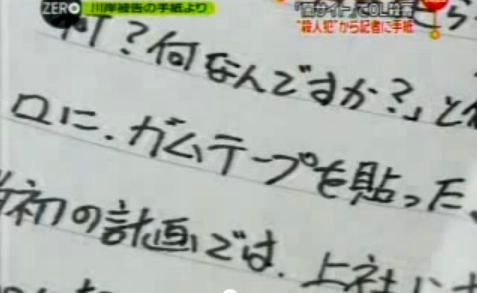 ZERO 川岸被告の手紙より
「闇サイト」でOL殺害
"殺人犯"から記者に手紙
何？何なんですか？」と
口に、ガムテープを貼った、
初の計画では、上社